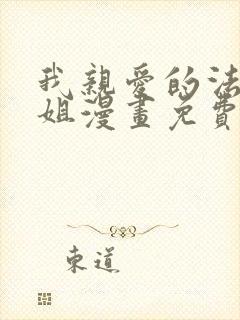 我親愛的法
姐漫畫免費
東道